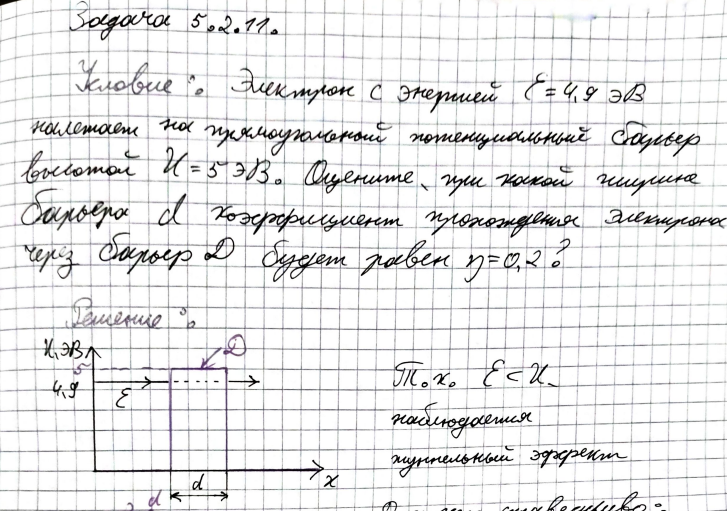 Задача 5.2.11.
Условие: Электрон с энергией E=4,9 эВ
налетает на прямоугольный потенциальный барьер
высотой U=5 эВ. Оцените, при какой ширине
барьера d коэффициент прохождения электрона
через барьер D будет равен η=0,2?
Решение:
U, эВ
D
5
4,9
E
d
x
d
Т.к. E<U
наблюдается
туннельный эффект